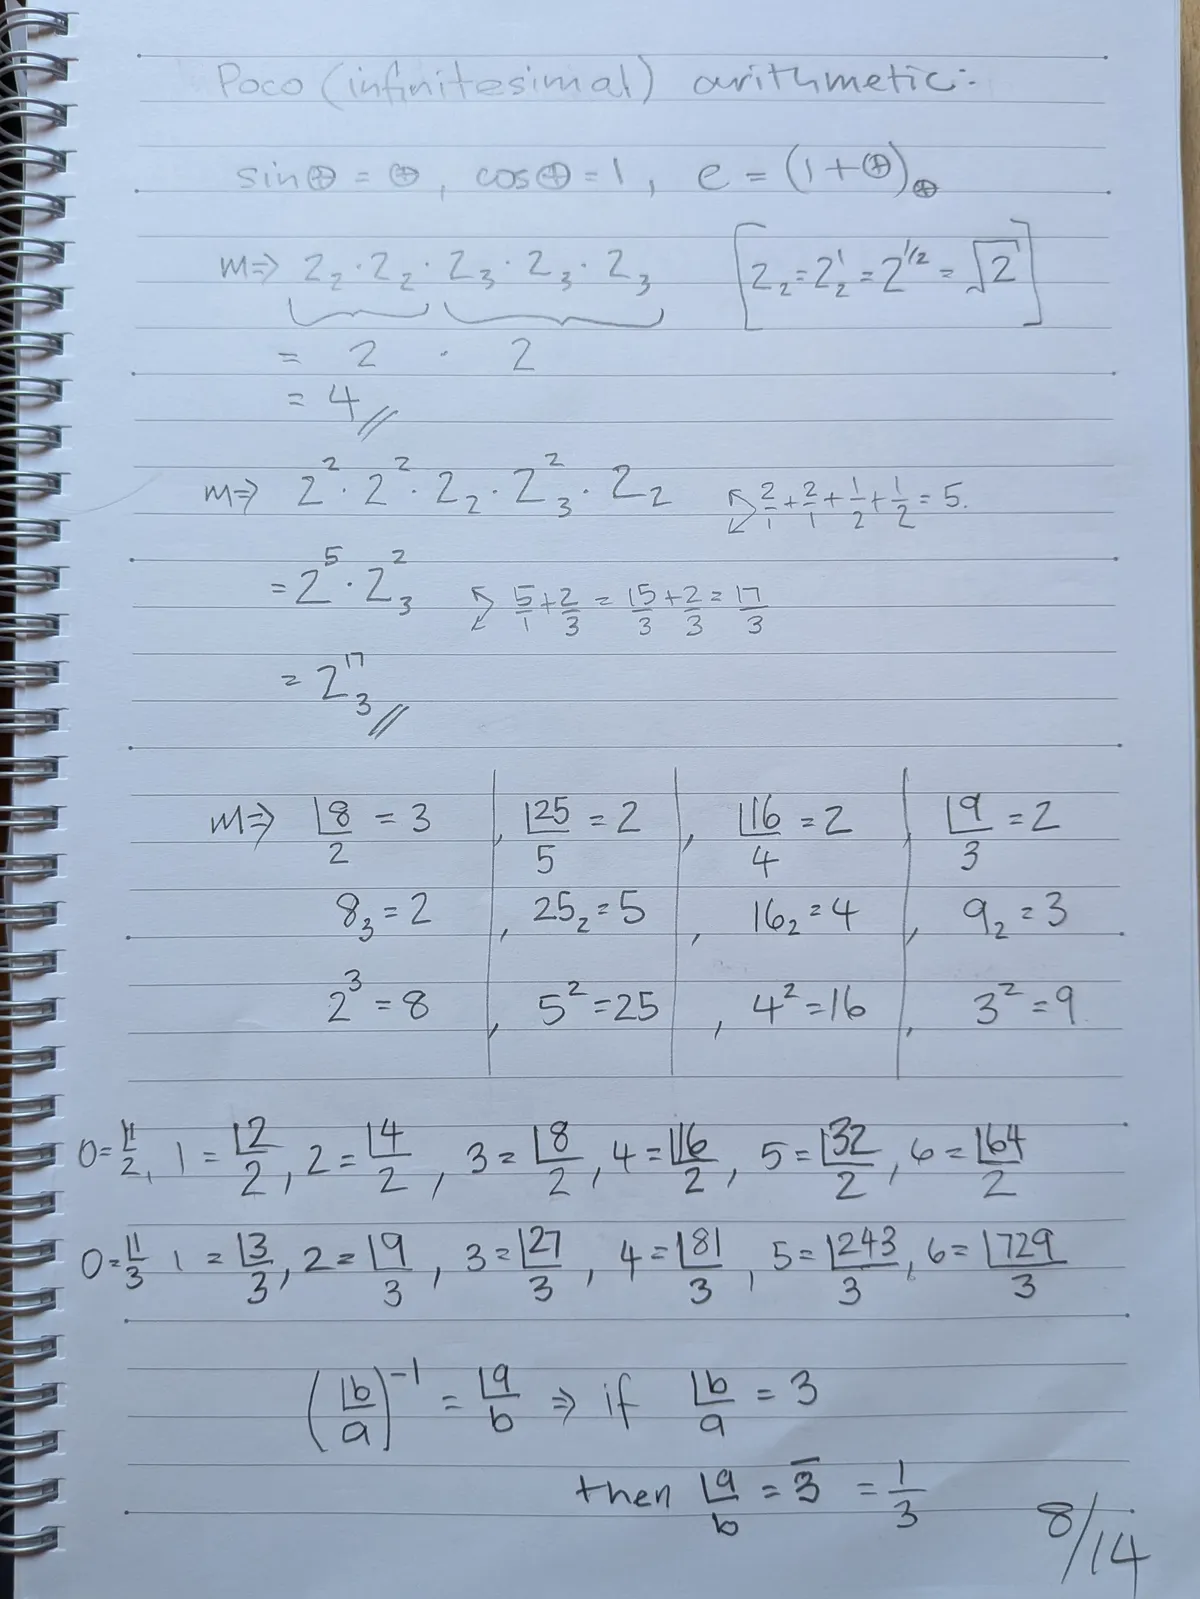 Poco (infinitesimal) arithmetic:-
sin⊕ = ⊕, cos⊕ = 1, e = (1+⊕)₍⊕₎
m⇒ 2₂ · 2₂ · 2₃ · 2₃ · 2₃ [2₂ = 2¹₂ = 2^1/2 = √2]
= 2 · 2
= 4 //
m⇒ 2² · 2² · 2₂ · 2²₃ · 2₂ 2/1 + 2/1 + 1/2 + 1/2 = 5.
= 2⁵ · 2²₃ 5/1 + 2/3 = 15/3 + 2/3 = 17/3
= 2¹⁷₃ //
m⇒ ⌊8/2 = 3, ⌊25/5 = 2, ⌊16/4 = 2, ⌊9/3 = 2
8₃ = 2, 25₂ = 5, 16₂ = 4, 9₂ = 3
2³ = 8, 5² = 25, 4² = 16, 3² = 9
0 = ⌊1/2, 1 = ⌊2/2, 2 = ⌊4/2, 3 = ⌊8/2, 4 = ⌊16/2, 5 = ⌊32/2, 6 = ⌊64/2
0 = ⌊1/3 1 = ⌊3/3, 2 = ⌊9/3, 3 = ⌊27/3, 4 = ⌊81/3, 5 = ⌊243/3, 6 = ⌊729/3
(⌊b/a)⁻¹ = ⌊a/b ⇒ if ⌊b/a = 3
then ⌊a/b = 3̅ = 1/3
8/14